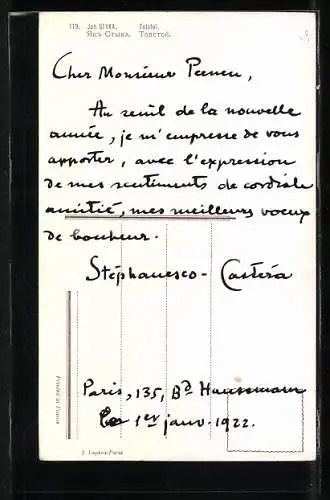 119. Jan STYKA. Tolstoï.
Янъ Стыка. Толстой.
Cher Monsieur
Au seuil de la nouvelle
année, je m'empresse de vous
apporter, avec l'expression
de mes sentiments de cordiale
amitié, mes meilleurs voeux
de bonheur.
Stéphanesco - Castéra
Paris, 135, Bd Haussmann
le 1er janv. 1922.
Printed in France